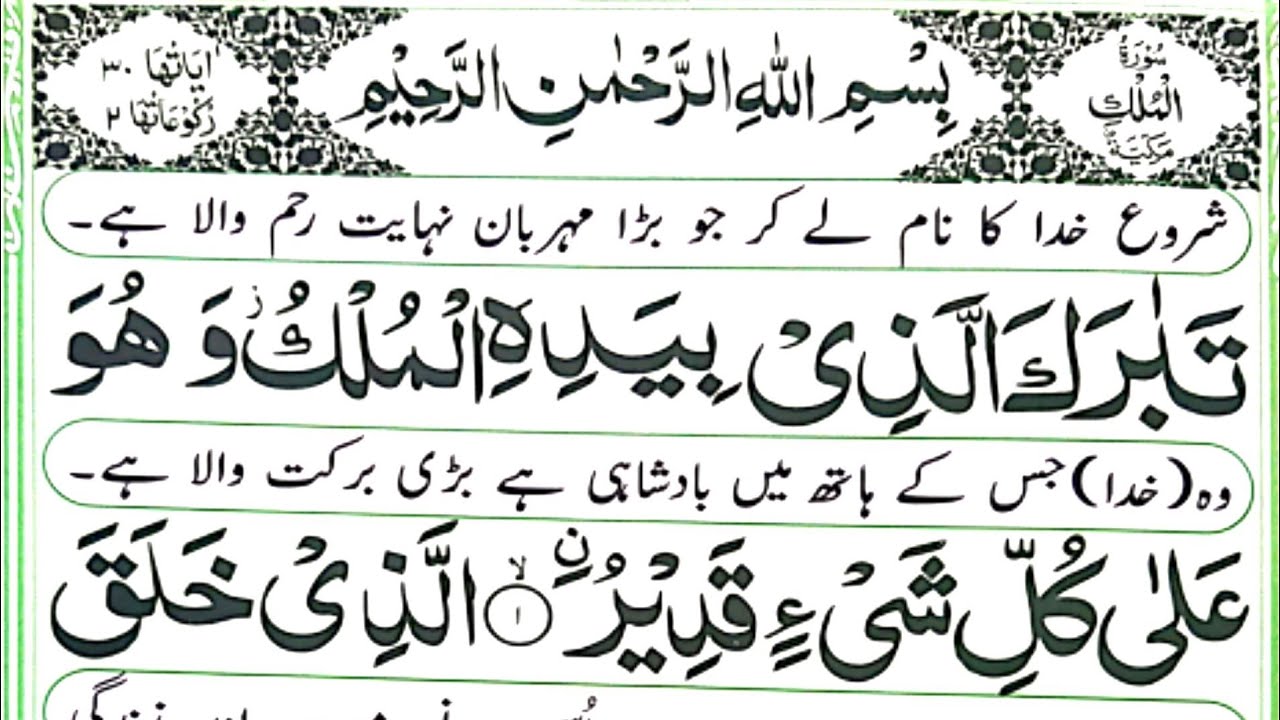 سُوْرَةُ
الْمُلْكِ
مَكِّيَّةٌ
بِسْمِ اللهِ الرَّحْمٰنِ الرَّحِيْمِ
اٰيَاتُهَا ٣٠
رُكُوْعَاتُهَا ٢
شروع خدا کا نام لے کر جو بڑا مہربان نہایت رحم والا ہے۔
تَبٰرَكَ الَّذِیْ بِیَدِهِ الْمُلْكُ ز وَ هُوَ
وہ (خدا) جس کے ہاتھ میں بادشاہی ہے بڑی برکت والا ہے۔
عَلٰی كُلِّ شَیْءٍ قَدِیْرُ ۙ نِ ١ الَّذِیْ خَلَقَ